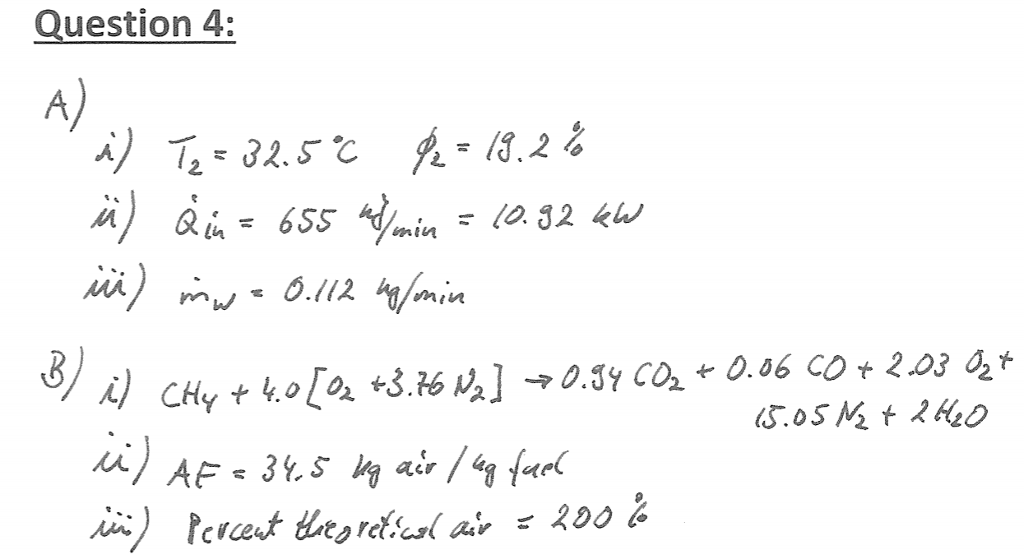 Question 4:
A)
i) T₂ = 32.5 °C ϕ₂ = 19.2 %
ii) Q̇in = 655 kJ/min = 10.92 kW
iii) ṁw = 0.112 kg/min
B) i) CH₄ + 4.0 [O₂ + 3.76 N₂] → 0.94 CO₂ + 0.06 CO + 2.03 O₂ +
15.05 N₂ + 2 H₂O
ii) AF = 34.5 kg air / kg fuel
iii) Percent theoretical air = 200 %